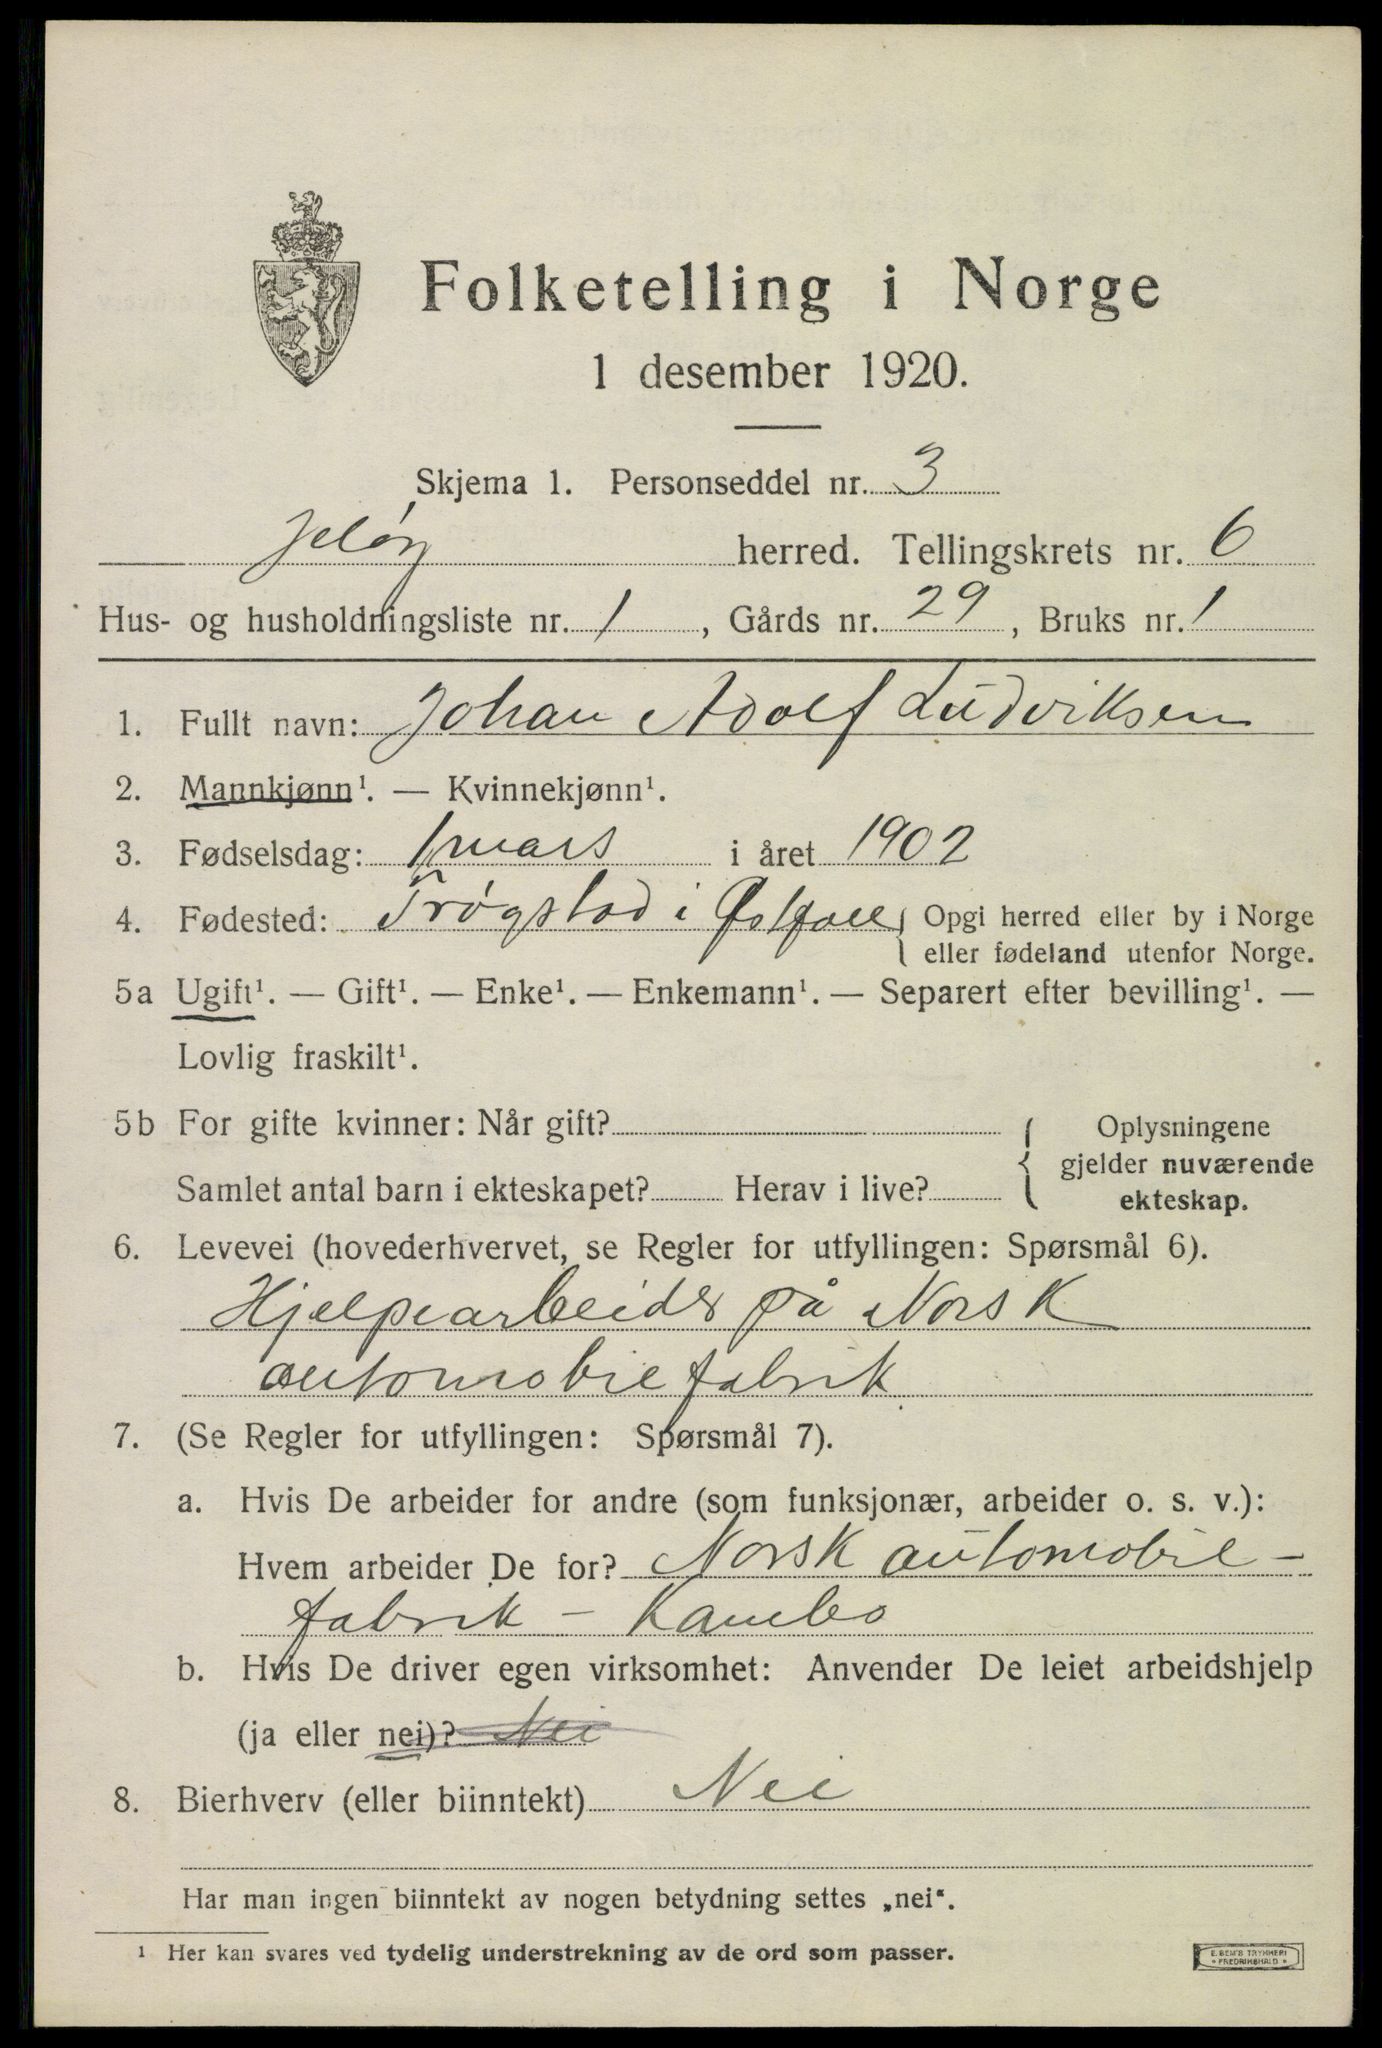 Folketelling i Norge
1 desember 1920.
Skjema 1. Personseddel nr. 3
Jeløy herred. Tellingskrets nr. 6
Hus- og husholdningsliste nr. 1, Gårds nr. 29, Bruks nr. 1
1. Fullt navn: Johan Adolf Ludviksen
2. Mannkjønn¹. — Kvinnekjønn¹.
3. Fødselsdag: 1 mars i året 1902
4. Fødested: Trøgstad i Østfoll { Opgi herred eller by i Norge
eller fødeland utenfor Norge.
5a Ugift¹. — Gift¹. — Enke¹. — Enkemann¹. — Separert efter bevilling¹. —
Lovlig fraskilt¹.
5b For gifte kvinner: Når gift? { Oplysningene
gjelder nuværende
Samlet antal barn i ekteskapet? Herav i live?
ekteskap.
6. Levevei (hovederhvervet, se Regler for utfyllingen: Spørsmål 6).
Hjelpearbeider på Norsk
automobilfabrik
7. (Se Regler for utfyllingen: Spørsmål 7).
a. Hvis De arbeider for andre (som funksjonær, arbeider o. s. v.):
Hvem arbeider De for? Norsk automobil-
fabrik – Kambo
b. Hvis De driver egen virksomhet: Anvender De leiet arbeidshjelp
(ja eller nei)? Nei
8. Bierhverv (eller biinntekt) Nei
Har man ingen biinntekt av nogen betydning settes „nei“.
¹ Her kan svares ved tydelig understrekning av de ord som passer.
E. SEM'S TRYKKERI
• FREDRIKSHALD •